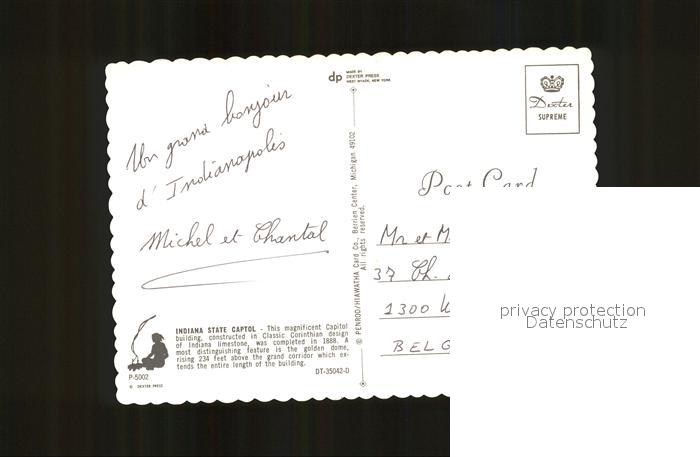 Un grand bonjour
d'Indianapolis
Michel et Chantal
INDIANA STATE CAPTOL - This magnificent Capitol
building, constructed in Classic Corinthian design
of Indiana limestone, was completed in 1888. A
most distinguishing feature is the golden dome,
rising 234 feet above the grand corridor which ex-
tends the entire length of the building.
P-5002
DT-35042-D
© DEXTER PRESS
dp
MADE BY
DEXTER PRESS
WEST NYACK, NEW YORK
© PENROD/HIAWATHA Card Co., Berrien Center, Michigan 49102
All rights reserved.
Dexter
SUPREME
Post Card
Mr et M
37 Ch.
1300 W
BELG
privacy protection
Datenschutz